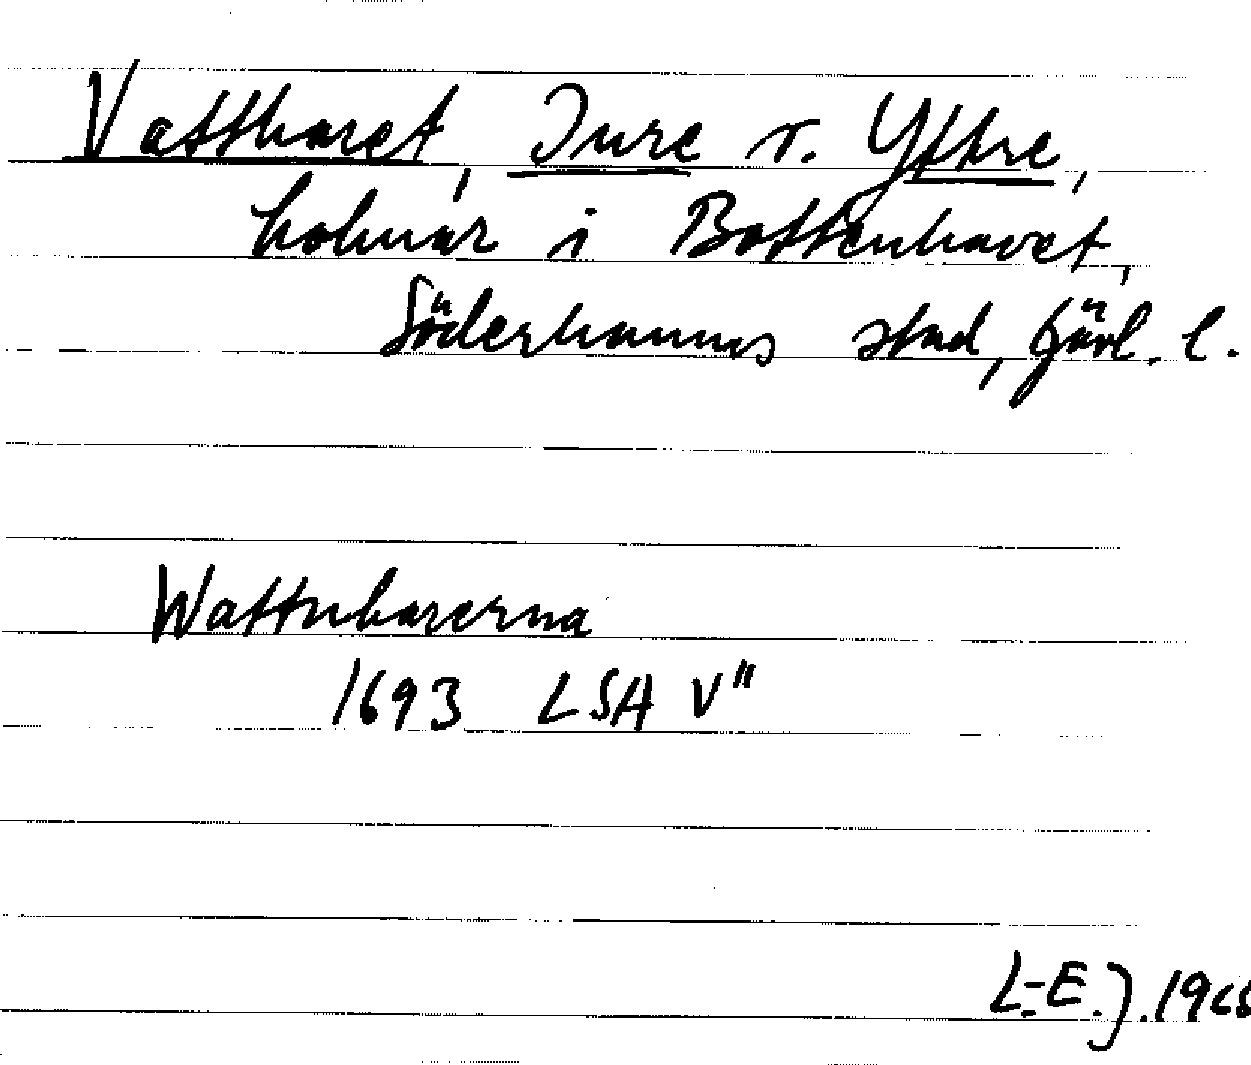 Vattharet, Inre o. Yttre,
holmar i Bottenhavet,
Söderhamns stad, Gävl. l.
Wattnharerna
1693 LSA V"
L-E.J. 196